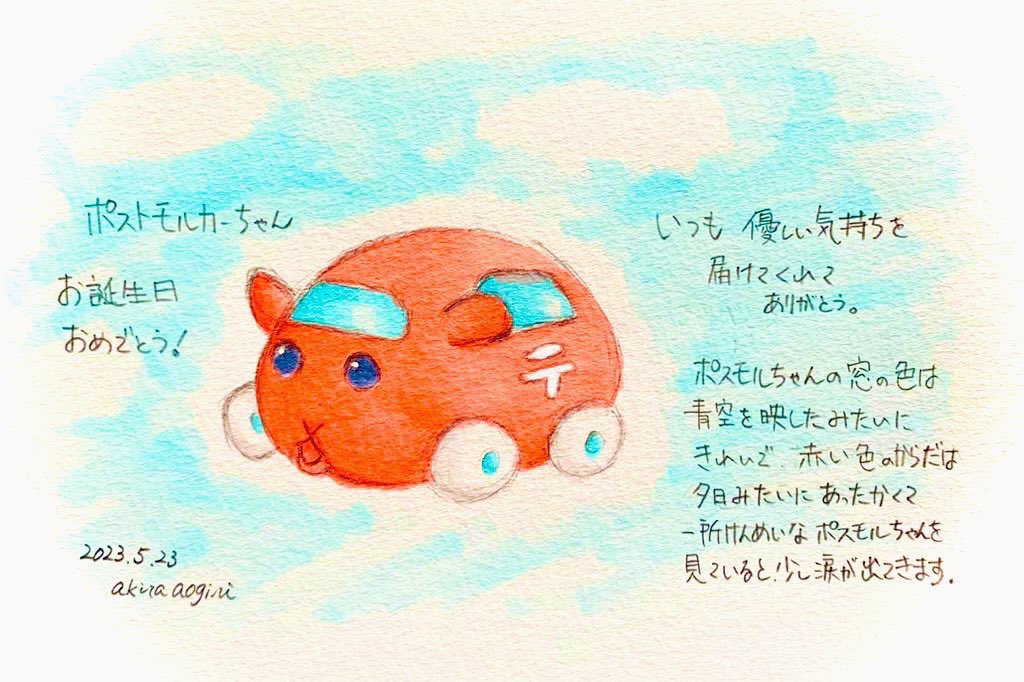 ポストモルカーちゃん
お誕生日
おめでとう!
いつも 優しい気持ちを
届けてくれて
ありがとう。
〒
ポスモルちゃんの窓の色は
青空を映したみたいに
きれいで、赤い色のからだは
夕日みたいに あったかくて
一所けんめいな ポスモルちゃんを
見ていると、少し涙が出てきます。
2023.5.23
akira aogiri